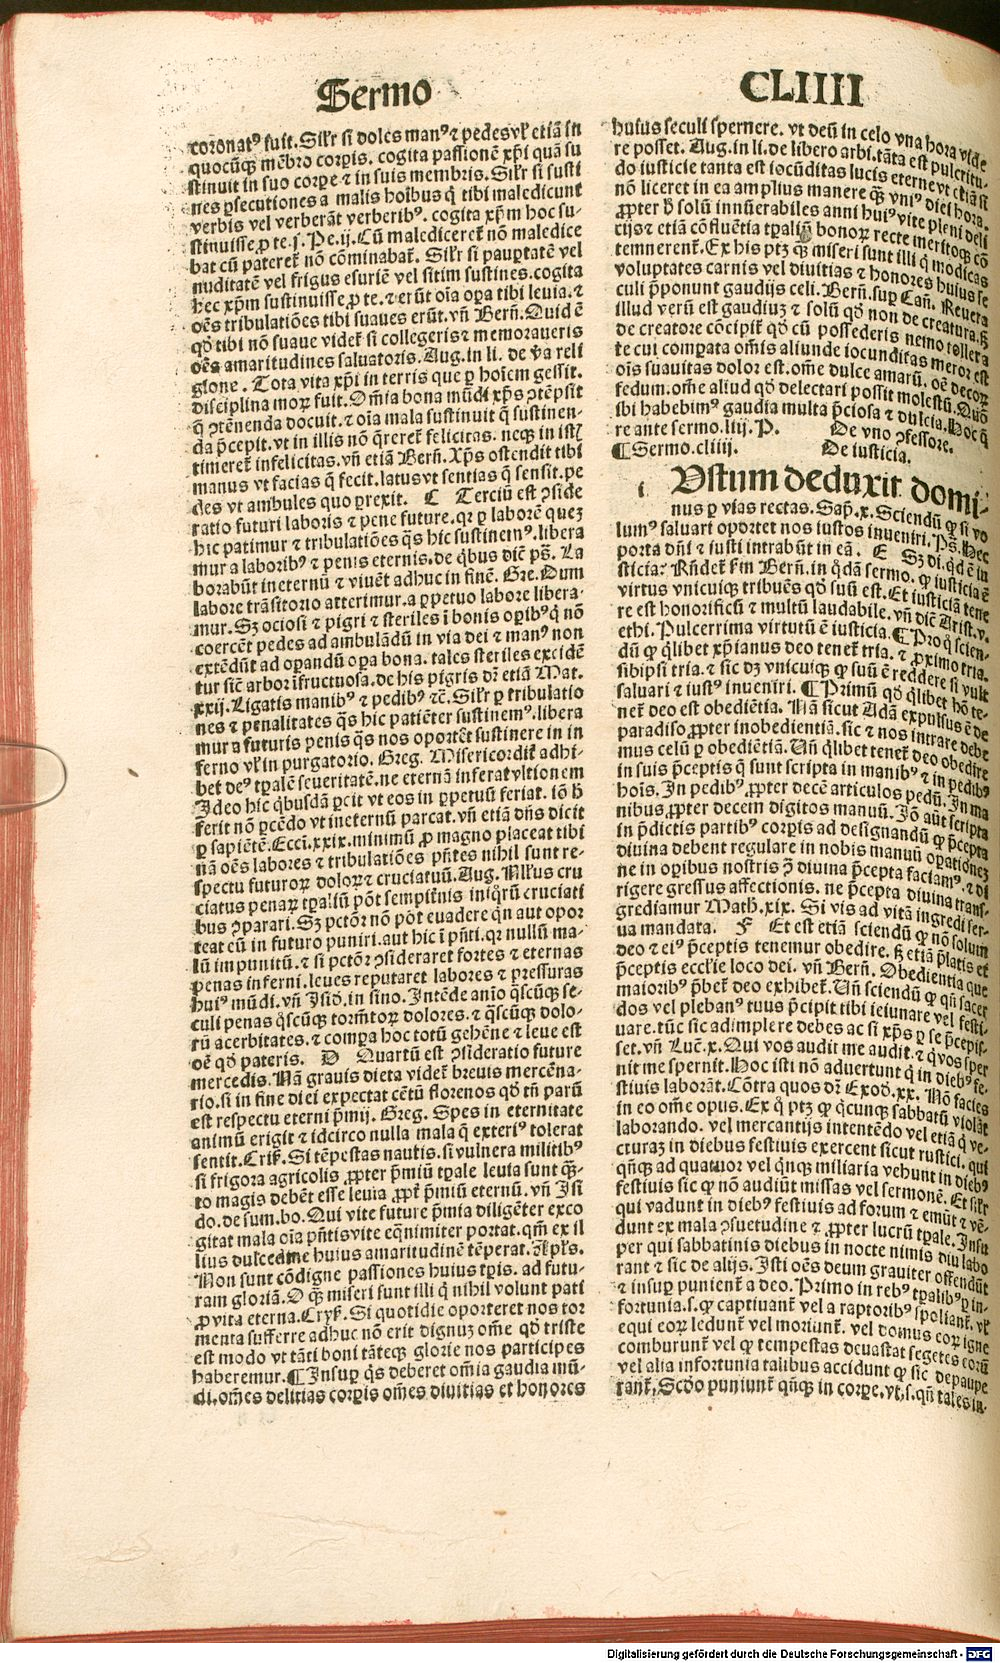 Sermo CLIIII
coronatꝰ fuit. Silr̃ si doles manꝰ ⁊ pedes vl̃ etiã in
quocũqꝫ mẽbro corꝑis. cogita passionẽ xp̃i quã su
stinuit in suo corꝑe ⁊ in suis membris. Silr̃ si susti
nes ꝑsecutiones a malis hoĩbus q̃ tibi maledicunt
verbis vel verberãt verberibꝰ. cogita xp̃m hoc su-
stinuisse ꝓ te. j. Pe. ij. Cũ malediceret̃ nõ maledice
bat cũ pateret̃ nõ cõminabat̃. Silr̃ si pauꝑtatẽ vel
nuditatẽ vel frigus esuriẽ vel sitim sustines. cogita
hec xp̃m sustinuisse ꝓ te. ⁊ erũt oĩa oꝑa tibi leuia. ⁊
oẽs tribulatiões tibi suaues erũt. vñ Bern̄. Quid ẽ
qđ tibi nõ suaue videt̃ si collegeris ⁊ memoraueris
oẽs amaritudines saluatoris. Aug. in li. de v̾a reli
gione. Tota vita xp̃i in terris que ꝑ hoĩem gessit.
disciplina moꝝ fuit. Oĩa bona mũdi xp̃s ꝯtẽpsit
q̃ ꝯtẽnenda docuit. ⁊ oĩa mala sustinuit q̃ sustinen-
da p̃cepit. vt in illis nõ q̃reret̃ felicitas. neqꝫ in istꝭ
timeret̃ infelicitas. vñ etiã Bern̄. Xp̃s ostendit tibi
manus vt facias q̃ fecit. latus vt sentias q̃ sensit. pe
des vt ambules quo ꝑrexit. C Terciũ est ꝯside
ratio futuri laboris ⁊ pene future. qꝛ ꝑ laborẽ quez
hic patimur ⁊ tribulatiões q̃s hic sustinemꝰ. libera
mur a laboribꝰ ⁊ penis eternis. de q̃bus dic̃ ps̃. La
borabũt ineternũ ⁊ viuẽt adhuc in finẽ. Gre. Dum
labore trãsitorio atterimur. a ꝑpetuo labore libera-
mur. Sꝫ ociosi ⁊ pigri ⁊ steriles ĩ bonis opibꝰ q̃ nõ
coercẽt pedes ad ambulãdũ in via dei ⁊ manꝰ non
extẽdũt ad oꝑandũ oꝑa bona. tales steriles excidẽ
tur sic̃ arbor ĩfructuosa. de his pigris dr̃ etiã Mat.
xxij. Ligatis manibꝰ ⁊ pedibꝰ ⁊c̃. Silr̃ ꝑ tribulatio
nes ⁊ penalitates q̃s hic patiẽter sustinemꝰ. libera
mur a futuris penis q̃s nos oportet̃ sustinere in in
ferno vl̃ in purgatorio. Greg. Misericordit̃ adhi-
bet deꝰ tꝑalẽ seueritatẽ. ne eternã inferat vltionem
Ideo hic q̃busdã ꝑcit vt eos in ꝑpetuũ feriat. iõ ħ
ferit nõ ꝑcẽdo vt ineternũ parcat. vñ etiã dñs dicit
ꝑ sapiẽtẽ. Ecci. xxix. minimũ ꝓ magno placeat tibi
nã oẽs labores ⁊ tribulatiões pñtes nihil sunt re-
spectu futuroꝝ doloꝝ ⁊ cruciatuũ. Aug. Nllus cru
ciatus penaꝝ tꝑaliũ põt sempit̾nis iniqrũ cruciati
bus ꝯparari. Sꝫ pctõr nõ põt euadere qn̄ aut opor
teat eũ in futuro puniri. aut hic ĩ pñti. qꝛ nullũ ma-
lũ impunitũ. ⁊ si pctõr ꝯsideraret fortes ⁊ eternas
penas inferni. leues reputaret labores ⁊ pressuras
huiꝰ mũdi. vñ Isid. in sino. Intẽde anĩo q̃scũqꝫ se-
culi penas q̃scũqꝫ tormẽtoꝝ dolores. ⁊ q̃scũqꝫ dolo-
rũ acerbitates. ⁊ comꝑa hoc totũ gehẽne ⁊ leue est
oẽ qđ pateris. D Quartũ est ꝯsideratio future
mercedis. Nã grauis dieta videt̃ breuis mercẽna-
rio. si in fine diei expectat cẽtũ florenos qđ tñ parũ
est respectu eterni p̃mij. Greg. Spes in eternitate
animũ erigit ⁊ idcirco nulla mala q̃ exteriꝰ tolerat
sentit. Cris̃. Si tẽpestas nautis. si vulnera militibꝰ
si frigora agricolis ꝓpter p̃miũ tꝑale leuia sunt q̃n-
to magis debẽt esse leuia ꝓpt̃ p̃miũ eternũ. vñ Isi
do. de sum. bo. Qui vite future p̃mia diligẽter exco
gitat mala oĩa pñtis vite eq̃nimiter portat. qm̃ ex il
lius dulcedine huius amaritudinẽ tẽperat. Apl̃s.
Non sunt cõdigne passiones huius tꝑis. ad futu-
ram gloriã. O q̃ꝫ miseri sunt illi q̃ nihil volunt pati
ꝓ vita eterna. Crys̃. Si quotidie oporteret nos tor
menta sufferre adhuc nõ erit dignuz om̃e qđ triste
est modo vt tãti boni tãteqꝫ glorie nos participes
haberemur. ¶ Insuꝑ q̃s deberet om̃ia gaudia mũ-
di. om̃es delitias corꝑis om̃es diuitias et honores
huius seculi spernere. vt deũ in celo vna hora vide
re posset. Aug. in li. de libero arbi. tãta est pulcritu-
do iusticie tanta est iocũditas lucis eterne vt etiã si
nõ liceret in ea amplius manere q̃ꝫ vniꝰ diei hora.
ꝓpter ħ solũ innũerabiles anni huiꝰ vite pleni deli
cijs ⁊ etiã cõfluẽtia tꝑaliũ bonoꝝ recte meritoqꝫ cõ
temnerent̃. Ex his ptꝫ q̃ꝫ miseri sunt illi q̃ modicas
voluptates carnis vel diuitias ⁊ honores huius se
culi p̃ponunt gaudijs celi. Bern̄. suꝑ Cañ. Reuera
illud verũ est gaudiuz ⁊ solũ qđ non de creatura. sꝫ
de creatore cõcipit̃ qđ cũ possederis nemo tollet a
te cui comꝑata om̃is aliunde iocunditas meror est
oĩs suauitas dolor est. om̃e dulce amarũ. oẽ decoꝝ
fedum. om̃e aliud qđ delectari possit molestũ. Quõ
ibi habebimꝰ gaudia multa p̃ciosa ⁊ dulcia. Hoc q̃
re ante sermo. liij. P. De vno ꝯfessore.
¶ Sermo. cliiij. De iusticia.
i Ustum deduxit domi-
nus ꝑ vias rectas. Sap̃. x. Sciendũ ꝙ si vo
lumꝰ saluari oportet nos iustos inueniri. Ps̃. Hec
porta dñi ⁊ iusti intrabũt in eã. E Sꝫ di. qd ẽ iu
sticia: Rñdet̃ s̃m Bern̄. in q̃dã sermo. ꝙ iusticia ẽ
virtus vnicuiqꝫ tribuẽs qđ suũ est. Et iusticiã tene
re est honorificũ ⁊ multũ laudabile. vñ dic̃ Arist. v.
ethi. Pulcerrima virtutũ ẽ iusticia. ¶ Pro q̃ scien-
dũ ꝙ q̃libet xp̃ianus deo tenet̃ tria. ⁊ ꝓximo tria.
sibipsi tria. ⁊ sic dꝫ vnicuiqꝫ ꝙ suũ ẽ reddere si vult
saluari ⁊ iustꝰ inueniri. ¶ Primũ qđ q̃libet hõ te-
net̃ deo est obediẽtia. Nã sicut Adã expulsus ẽ de
paradiso ꝓpter inobedientiã. sic ⁊ nos intrare debe
mus celũ ꝑ obediẽtiã. Uñ q̃libet tenet̃ deo obedire
in suis p̃ceptis q̃ sunt scripta in manibꝰ ⁊ in pedibꝰ
hoĩs. In pedibꝰ. ꝓpter decẽ articulos pedũ. In ma
nibus. ꝓpter decem digitos manuũ. Iõ aũt scripta
in p̃dictis partibꝰ corꝑis ad designandũ ꝙ p̃cepta
diuina debent regulare in nobis manuũ oꝑationez
ne in oꝑibus nostris ꝯ̃ diuina p̃cepta faciamꝰ. ⁊ di
rigere gressus affectionis. ne p̃cepta diuina trans-
grediamur Math. xix. Si vis ad vitã ingredi ser-
ua mandata. F Et est etiã sciendũ ꝙ nõ solum
deo ⁊ eiꝰ p̃ceptis tenemur obedire. sꝫ etiã p̃latis et
p̃ceptis eccl̃ie loco dei. vñ Bern̄. Obedientia que
maioribꝰ p̃bet̃ deo exhibet̃. Uñ sciendũ ꝙ qñ sacer
dos vel plebanꝰ tuus p̃cipit tibi ieiunare vel festi-
uare. tũc sic adimplere debes ac si xp̃s ꝑ se p̃cepis-
set. vñ Luc̃. x. Qui vos audit me audit. ⁊ q̃ vos sper
nit me spernit. Hoc isti nõ aduertunt q̃ in diebꝰ fe-
stiuis laborãt. Cõtra quos dr̃ Exod. xx. Nõ facies
in eo om̃e opus. Ex q̃ ptꝫ ꝙ q̃cunqꝫ sabbatũ violãt
laborando. vel mercantijs intentẽdo vel etiã q̃ ve-
cturaz in diebus festiuis exercent sicut rustici. qui
qñqꝫ ad quatuor vel q̃nqꝫ miliaria vehunt in diebꝰ
festiuis sic ꝙ nõ audiũt missas vel sermonẽ. Et silr̃
qui vadunt in diebꝰ festiuis ad forum ⁊ emũt ⁊ vẽ-
dunt ex mala ꝯsuetudine ⁊ ꝓpter lucrũ tꝑale. Insu
per qui sabbatinis diebus in nocte nimis diu labo
rant ⁊ sic de alijs. Isti oẽs deum grauiter offendũt
⁊ insuꝑ punient̃ a deo. Primo in rebꝰ tꝑalibꝰ ꝑ in-
fortunia. s. ꝙ captiuant̃ vel a raptoribꝰ spoliant̃. vl̃
equi eoꝝ ledunt̃ vel moriunt̃. vel domus eoꝝ igne
comburunt̃ vel ꝙ tempestas deuastat segetes eorũ
vel alia infortunia talibus accidunt ꝙ sic depaupe
rant̃. Scdo puniunt̃ qñqꝫ in corꝑe. vt. s. qñ tales in-
Digitalisierung gefördert durch die Deutsche Forschungsgemeinschaft - DFG